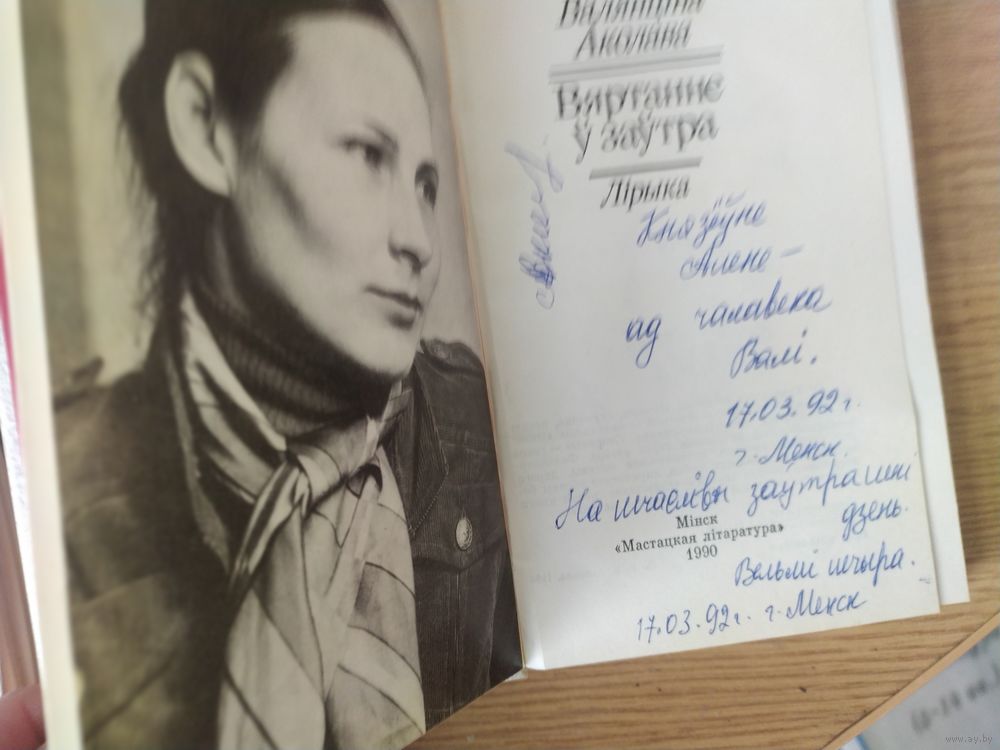 Валянціна
Аколава
Вяртанне
ў заўтра
Лірыка
Князёўне
Алене —
ад чалавека
Валі.
17.03.92 г.
г. Менск.
На шчаслівы заўтрашні
дзень.
Мінск
«Мастацкая літаратура»
1990
Вельмі шчыра.
17.03.92 г. г. Менск
www.ay.by